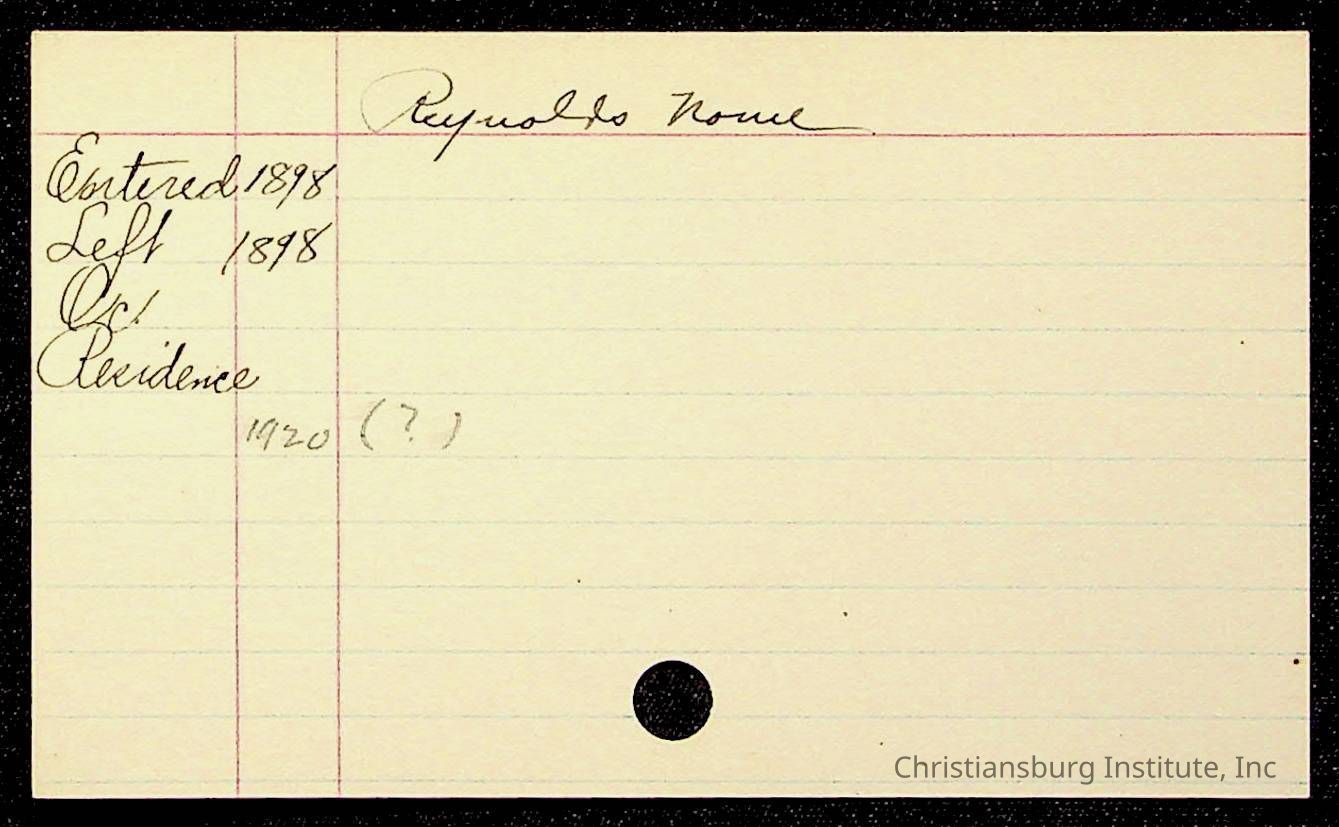 Reynolds Nome
Entered 1898
Left 1898
Oc.
Residence
1920 (?)
Christiansburg Institute, Inc